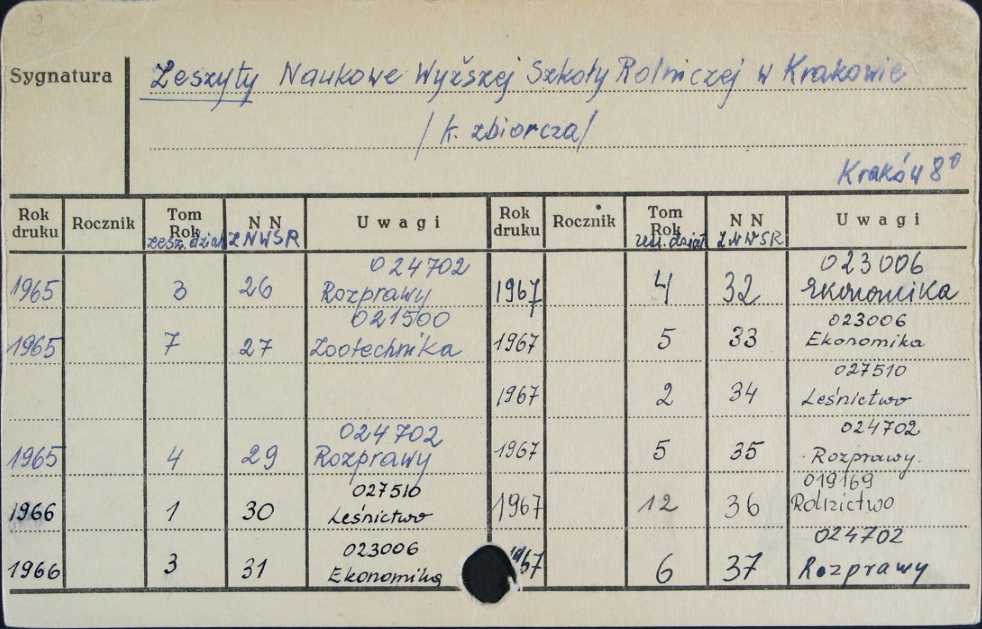 Sygnatura
Zeszyty Naukowe Wyższej Szkoły Rolniczej w Krakowie
/k. zbiorcza/
Kraków 8°
Rok druku Rocznik Tom Rok zesz. dział NN ZNWSR Uwagi
1965 3 26 024702 Rozprawy
1965 7 27 021500 Zootechnika
1965 4 29 024702 Rozprawy
1966 1 30 027510 Leśnictwo
1966 3 31 023006 Ekonomika
Rok druku Rocznik Tom Rok zesz. dział NN ZNWSR Uwagi
1967 4 32 023006 Ekonomika
1967 5 33 023006 Ekonomika
1967 2 34 027510 Leśnictwo
1967 5 35 024702 Rozprawy.
1967 12 36 019169
1967 6 37 024702 Rozprawy